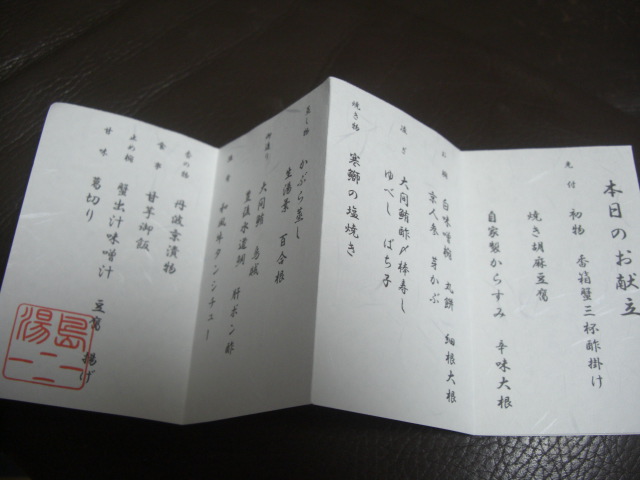 本日のお献立
先付 初物 香箱蟹三杯酢掛け
焼き胡麻豆腐
自家製からすみ 辛味大根
お椀 白味噌椀 丸餅 細根大根
京人参 芽かぶ
凌ぎ 大間鮪酢〆棒寿し
ゆべし ばち子
焼き物 寒鰤の塩焼き
蒸し物 かぶら蒸し
生湯葉 百合根
御造り 大間鮪 烏賊
豊浜水達朗 肝ポン酢
和風牛タンシチュー
食事 甘草御飯
香の物 丹波京漬物
止め椀 蟹出汁味噌汁 豆腐 揚げ
甘味 葛切り
湯島
一二一